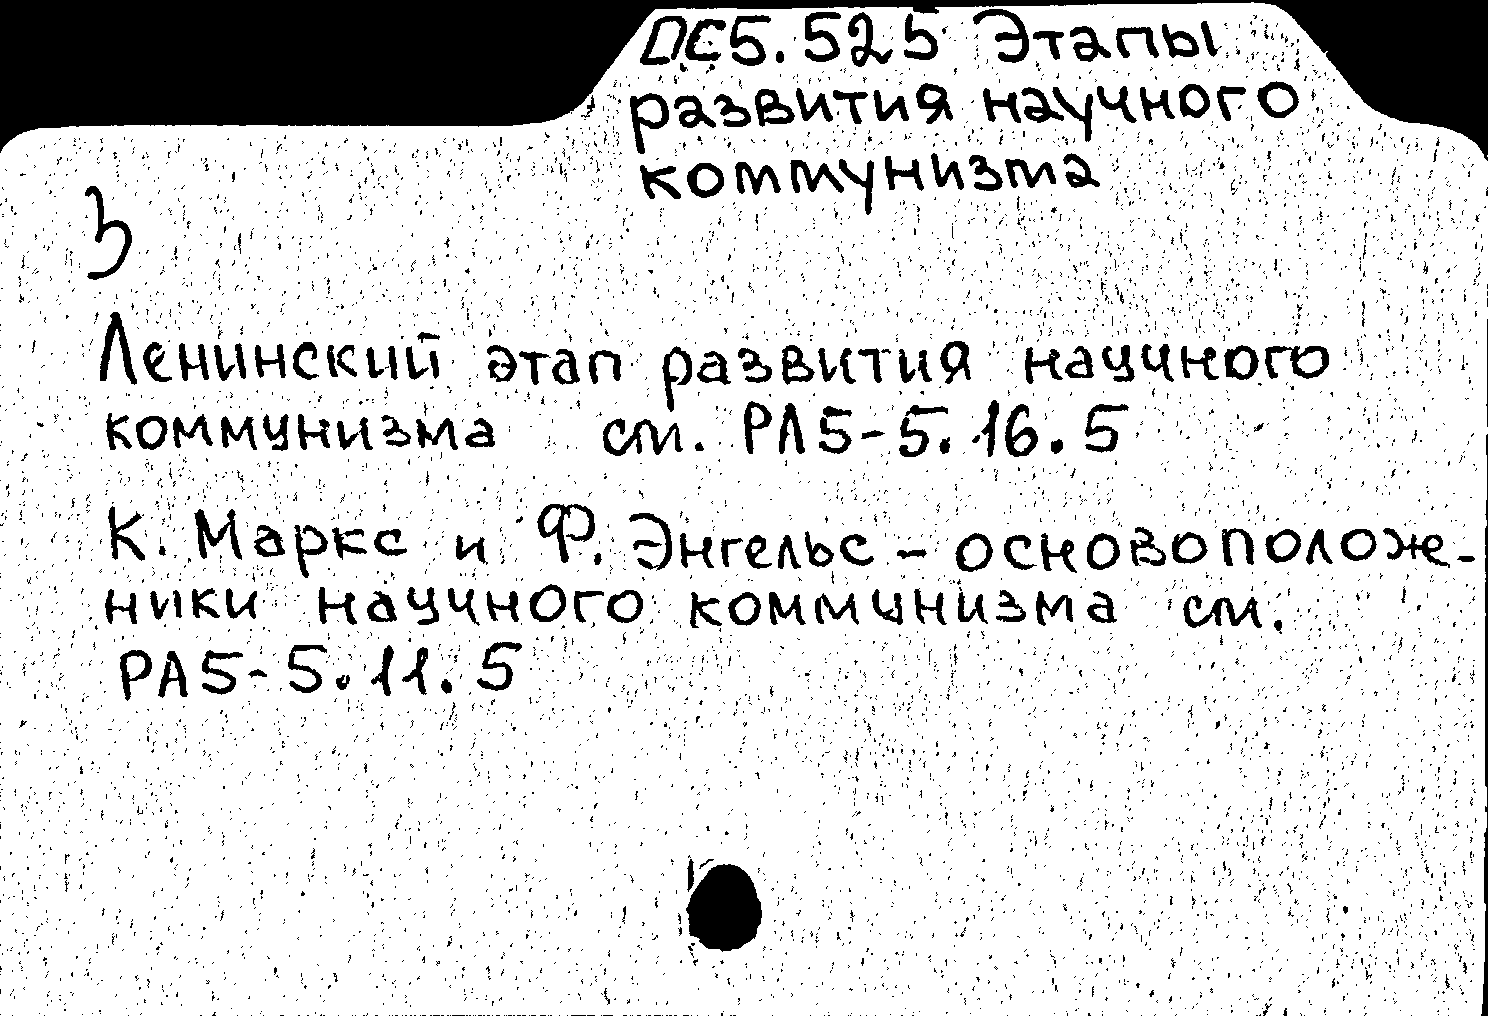 DC5.525 Этапы
развития научного
коммунизма
З
Ленинский этап развития научного
коммунизма см. РЛ5-5.16.5
К. Маркс и Ф. Энгельс - основоположе-
ники научного коммунизма см.
РА5-5.11.5